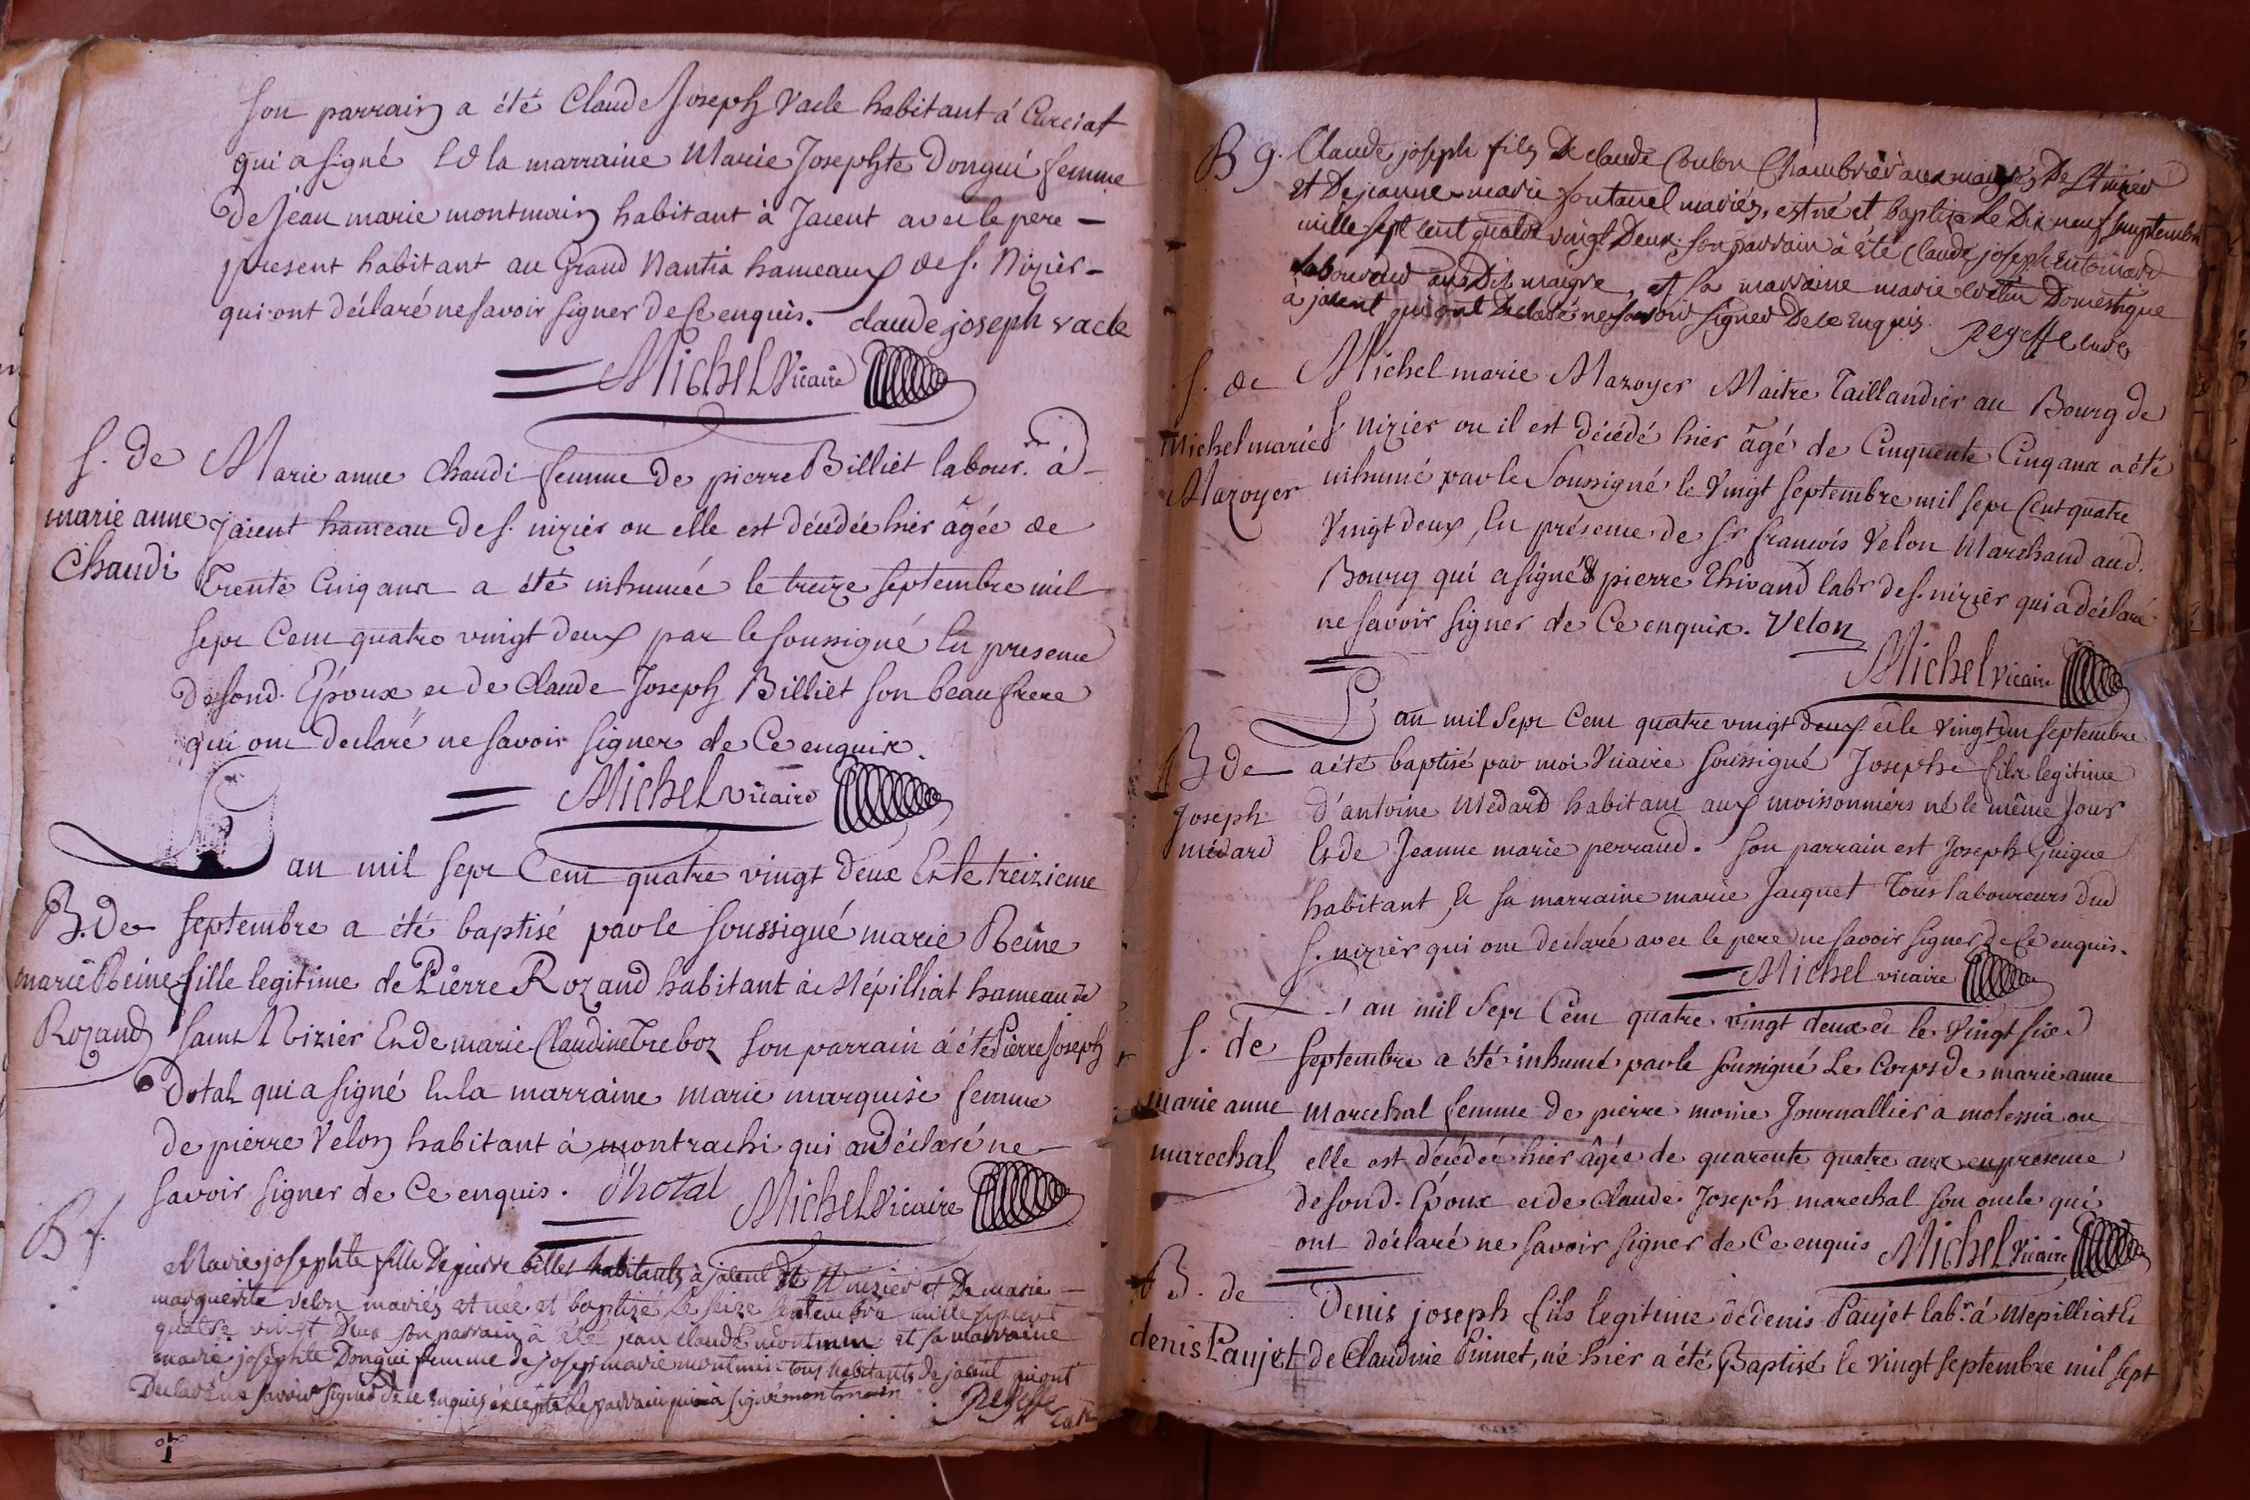 son parrain a été Claude Joseph Vacle habitant á Curciat
qui a signé Et la marraine Marie Josephte Dongui femme
de Jean marie montmain habitant à Jacent avec le pere -
present habitant au Grand Nantia hameaux de s. Nizier -
qui ont déclaré ne savoir signer de ce enquis. claude joseph vacle
Michel Vicaire
s. de
marie anne
Chaudi
Marie anne Chaudi femme de pierre Billiet labour. á -
Jacent hameau de s. nizier ou elle est décédée hier âgée de
trente Cinq ans a été inhumée le treize septembre mil
sept Cent quatre vingt deux par le soussigné En presence
de sond. Epoux et de Claude Joseph Billiet son beau frere
qui ont declaré ne savoir signer de Ce enquis.
Michel vicaire
B. de
marie Reine
Rozand
L'an mil sept Cent quatre vingt deux Et le treizieme
septembre a été baptisé par le soussigné marie Reine
fille legitime de Pierre Rozand habitant à Mépilliat hameau de
saint Nizier Et de marie Claudine Treboz son parrain á été Pierre Joseph
Dotal qui a signé Et la marraine marie marquise femme
de pierre Velon habitant à montrachi qui a déclaré ne
savoir signer de Ce enquis. d'hotal Michel Vicaire
B f.
Marie josephte fille De pierre billet habitants à jacent De St nizier et De marie
marguerite velon mariés et née et baptizé Le seize septembre mille sept cent
quatre vingt Deux son parrain à été jean claude montmain et sa marraine
marie josephte Dongui femme de joseph marie montmain tous habitants de jacent qui ont
Declaré ne savoir signer De ce enquis excepté Le parrain qui a signé montmain
Reyeffe curé
B g.
Claude joseph fils De claude Coulon Chambrier aux maigres De St nizier
et De jeanne marie fontanel mariés, est né et baptizé Le Dix neuf septembre
mille sept cent quatre vingt Deux son parrain à été Claude joseph Entoinard
Laboureur au Dit maigre, et sa marraine marie Domestique
à jacent qui ont Declaré ne savoir signer De ce Enquis. Reyeffe curé
s. de
Michel marie
Mazoyer
Michel marie Mazoyer Maitre Taillandier au Bourg de
s. Nizier ou il est décédé hier âgé de Cinquente Cinq ans a été
inhumé par le soussigné le vingt septembre mil sept Cent quatre
vingt deux, En présence de sr. francois Velon Marchand aud.
Bourg qui a signé & pierre Thivand labr de s. nizier qui a déclaré
ne savoir signer de Ce enquis. Velon
Michel Vicaire
B de
Joseph
médard
L'an mil sept Cent quatre vingt deux et le vingt un septembre
a été baptisé par moi Vicaire soussigné Joseph fils legitime
d'antoine Medard habitant aux moissonniers né le même jour
Et de Jeanne marie perraud. son parrain est Joseph Guigue
habitant, & sa marraine marie Jacquet tous laboureurs dud
s. nizier qui ont declaré avec le pere ne savoir signer de Ce enquis.
Michel vicaire
s. de
marie anne
marechal
L'an mil sept Cent quatre vingt deux et le Vingt six
septembre a été inhumé par le soussigné Le Corps de marie anne
marechal femme de pierre moine Journallier a molessia ou
elle est décédée hier âgée de quarente quatre ans en présence
de sond. Epoux et de Claude Joseph marechal son oncle qui
ont déclaré ne savoir signer de Ce enquis Michel Vicaire
B. de
denis Paujet
Denis joseph fils legitime de denis Paujet labr. á Mepilliat Et
de Claudine Pinnet, né hier a été Baptisé le vingt septembre mil sept